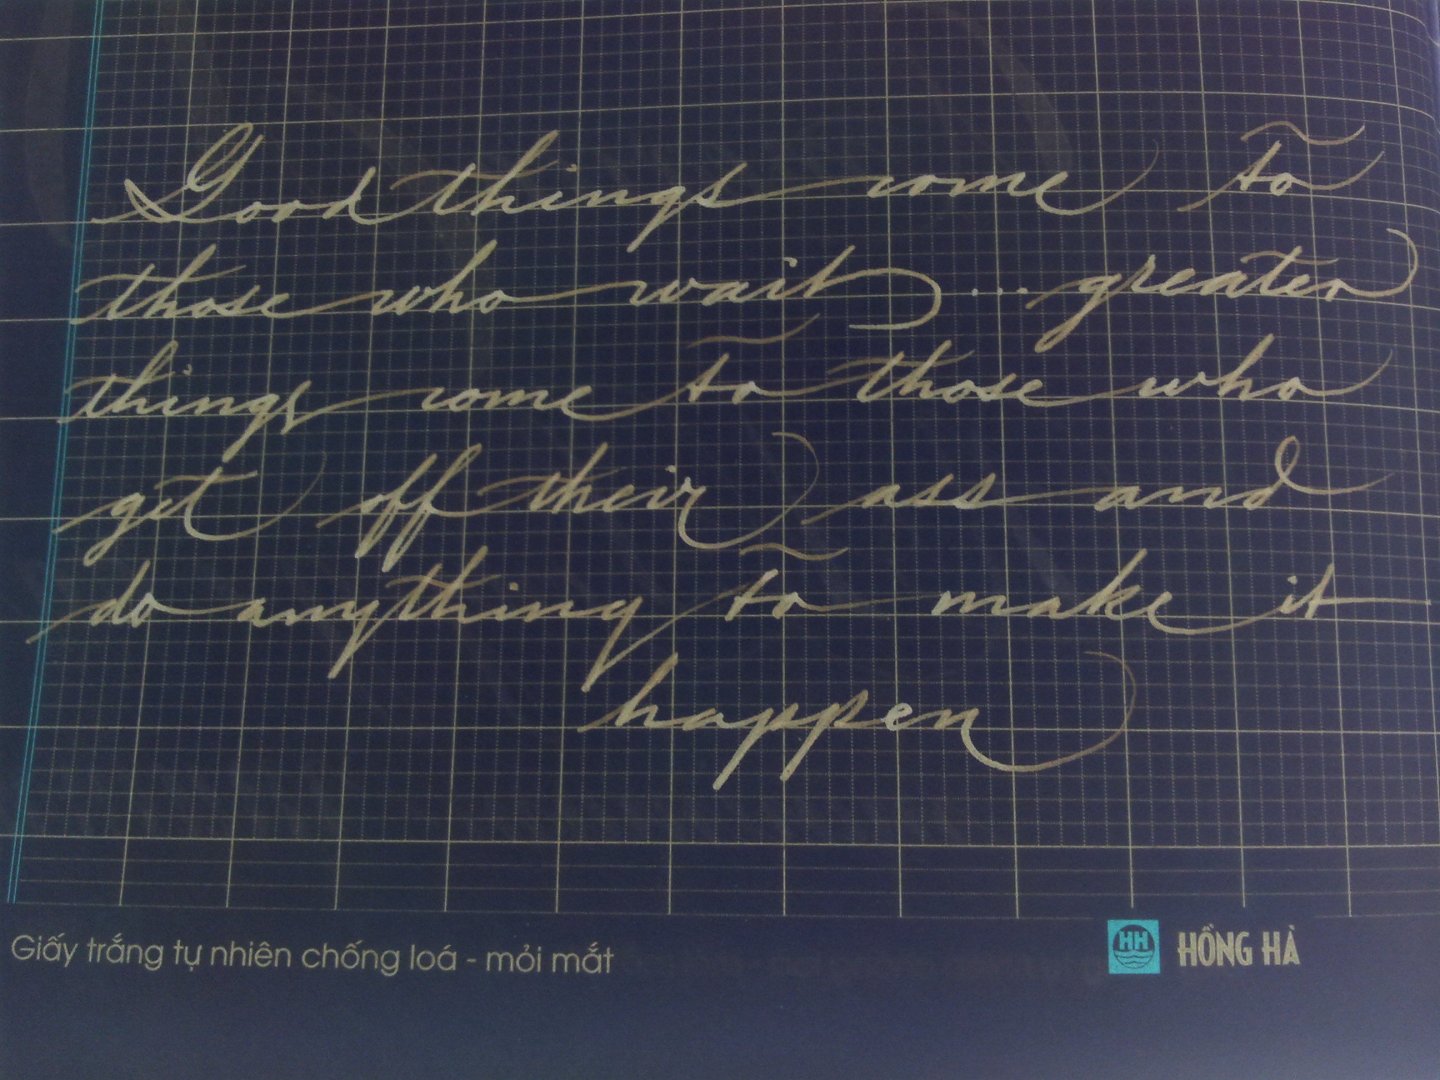 Good things come to
those who wait ... greater
things come to those who
get off their ass and
do anything to make it
happen
Giấy trắng tự nhiên chống loá - mỏi mắt
HH HỒNG HÀ